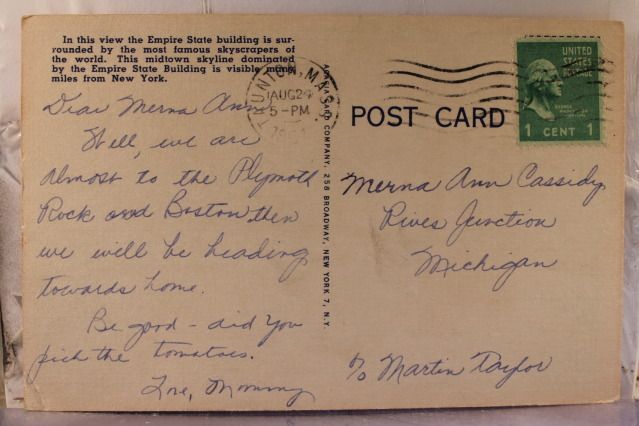 In this view the Empire State building is sur-
rounded by the most famous skyscrapers of
the world. This midtown skyline dominated
by the Empire State Building is visible many
miles from New York.
TAUNTON, MASS.
AUG 24
5-PM
UNITED
STATES
POSTAGE
1 CENT 1
POST CARD
CARD COMPANY, 258 BROADWAY, NEW YORK 7, N.Y.
Dear Merna Ann
Well, we are
almost to the Plymoth
Rock and Boston then
we will be heading
towards home.
Be good - did you
pick the tomatoes.
Love, Mommy
Merna Ann Cassidy
Rives Junction
Michigan
c/o Martin Taylor